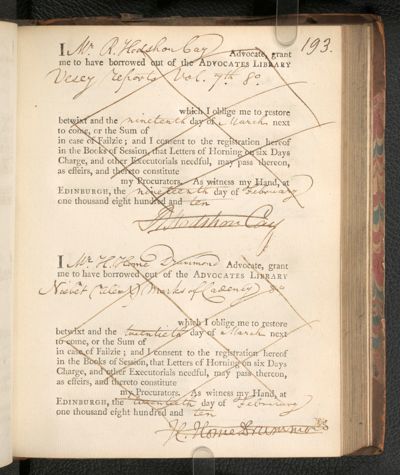 193.
I Mr. R. Hodshon Cay Advocate, grant
me to have borrowed out of the ADVOCATES LIBRARY
Vesey reports Vol. 7th 8o.
which I oblige me to restore
betwixt and the nineteenth day of March next
to come, or the Sum of
in case of Failzie; and I consent to the registration hereof
in the Books of Session, that Letters of Horning on six Days
Charge, and other Executorials needful, may pass thereon,
as effeirs, and thereto constitute
my Procurators. As witness my Hand, at
EDINBURGH, the nineteenth day of February
one thousand eight hundred and ten
R. Hodshon Cay
I Mr. H. Home Drummond Advocate, grant
me to have borrowed out of the ADVOCATES LIBRARY
Nisbet Marks of Cadency 8o
which I oblige me to restore
betwixt and the twentieth day of March next
to come, or the Sum of
in case of Failzie; and I consent to the registration hereof
in the Books of Session, that Letters of Horning on six Days
Charge, and other Executorials needful, may pass thereon,
as effeirs, and thereto constitute
my Procurators. As witness my Hand, at
EDINBURGH, the twentieth day of February
one thousand eight hundred and ten
H. Home Drummond